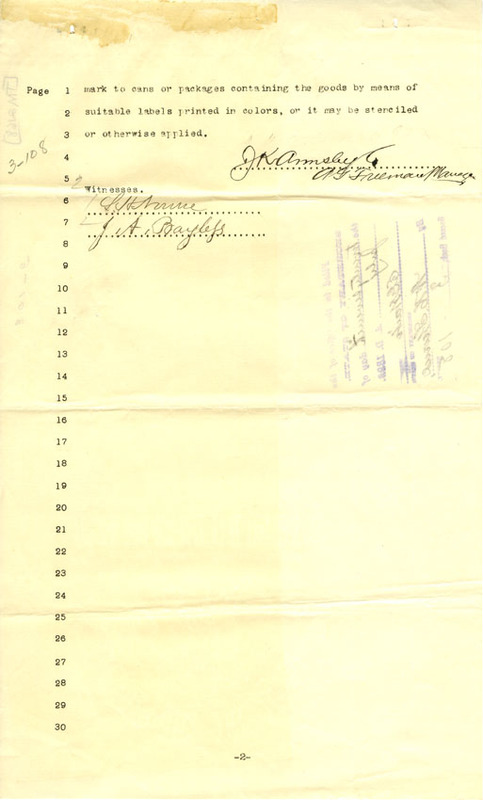 Page 1 mark to cans or packages containing the goods by means of
2 suitable labels printed in colors, or it may be stenciled
3 or otherwise applied.
3-108
4 J K Armsby Co
5 Freeman Manager
Witnesses.
6
7 J. A. Bayless
8
9
10
11
12
13
14
15
16
17
18
19
20
21
22
23
24
25
26
27
28
29
30
-2-